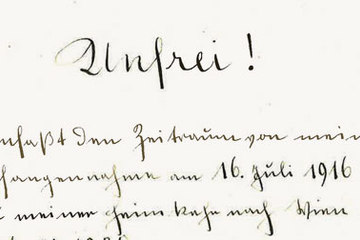 Unfrei!
mfaßt den Zeitraum von mein
fangennahme am 16. Juli 1916
meiner Heimkehr nach Wien